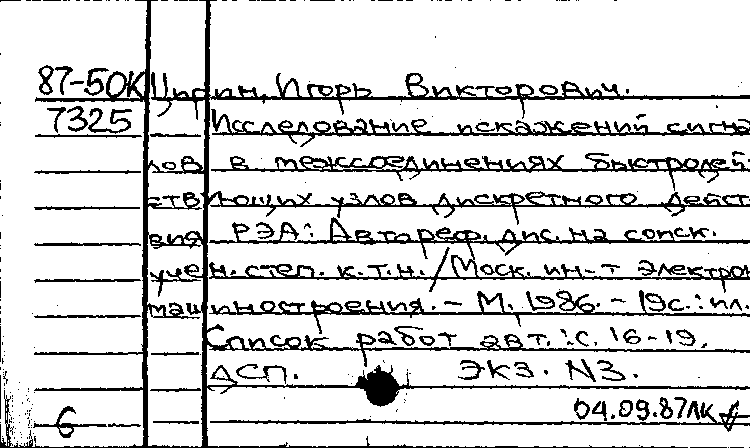 87-50К Цирин, Игорь Викторович.
7325 Исследование искажений сигна
лов в межсоединениях быстродей
ствующих узлов дискретного дейст
вия РЭА: Автореф. дис. на соиск.
учен. степ. к.т.н./Моск. ин-т электрон
машиностроения. - М., 1986. - 19с.: ил.
Список работ авт.: с. 16-19.
ДСП. экз. N3.
04.09.87ЛК
6